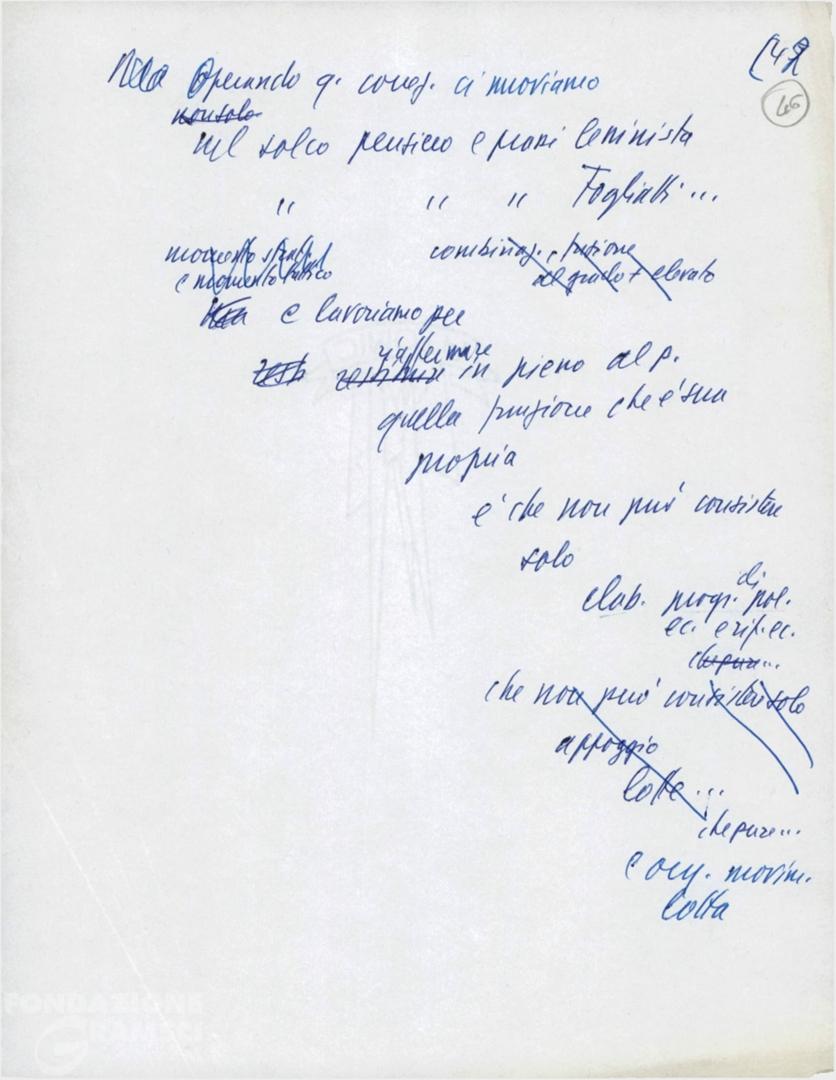 (42
46
Operando q. coneg. ci muoviamo
non solo
nel solco pensiero e prassi leninista
" " " Togliatti...
momento strat.
e momento tattico
combinaz. e fusione
al grado + elevato
e lavoriamo per
riaffermare
restituire in pieno al p.
quella funzione che è sua
propria
e che non può consistere
solo
elab. progr. di pol.
ec. e rif. ec.
che pure...
che non può consistere solo
appoggio
lotte...
che pure...
e org. movim.
lotta
FONDAZIONE
GRAMSCI